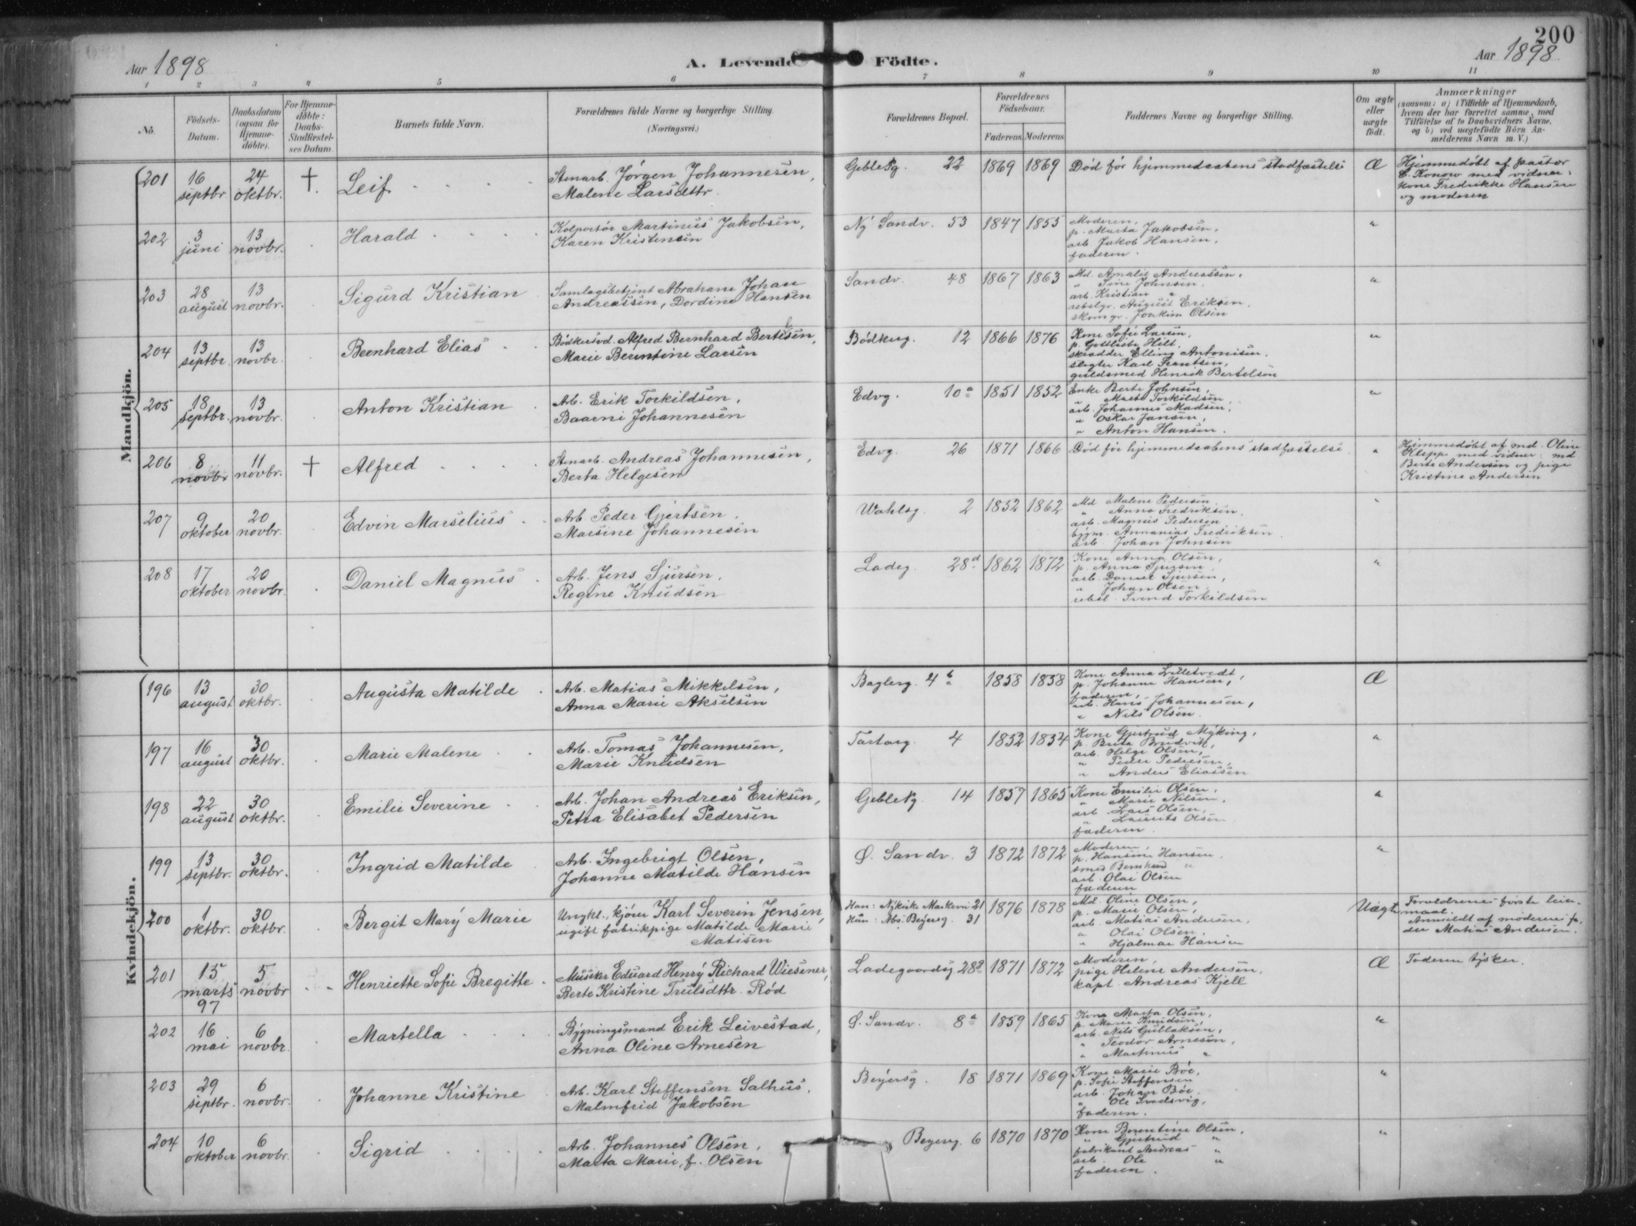 200
Aar 1898
A. Levende Födte.
Aar 1898
1 2 3 4 5 6 7 8 9 10 11
No.
Födsels-Datum.
Daabsdatum (ogsaa for Hjemme-döbte).
For Hjemme-döbte: Daabs-Stadfæstel-ses Datum.
Barnets fulde Navn.
Forældrenes fulde Navne og borgerlige Stilling. (Næringsvei)
Forældrenes Bopæl.
Forældrenes Födselsaar.
Faderens. Moderens.
Faddernes Navne og borgerlige Stilling.
Om ægte eller uægte födt.
Anmærkninger
(saasom: a) i Tilfælde af Hjemmedaab, hvem der har forrettet samme, med Tilföielse af to Daabsvidners Navne, og b) ved uægtefödte Börn Anmelderens Navn m. V.)
Mandkjön.
201 16 septbr. 24 oktbr. † Leif
Stenarb. Jörgen Johannesen,
Malene Larsdttr.
Geblesg. 22 1869 1869 Död för hjemmedaabens stadfæstelse Æ
Hjemmedöbt af pastor
C. Konow med vidner:
kone Fredrikke Hansen
og moderen
202 3 juni 13 novbr. Harald
Kolportör Martinus Jakobsen,
Karen Kristensen
Ny Sandv. 53 1847 1855
Moderen,
p. Marta Jakobsen,
arb. Jakob Hansen,
faderen.
203 28 august 13 novbr. Sigurd Kristian
Samlagsbetjent Abraham Johan
Andreassen, Dordine Hansen
Sandv. 48 1867 1863
Md. Amalie Andreassen,
" Johnsen.
arb. Kristian "
August Eriksen,
Joakim Olsen
204 13 septbr. 13 novbr. Bernhard Elias
Bödkersv. Alfred Bernhard Bertelsen,
Marie Berentine Larsen
Bödkerg. 12 1866 1876
Kone Sofie Larsen,
p. Gottliebe Hild,
skrædder Elling Antonisen,
slagter Karl
guldsmed Henrik Bertelsen
205 18 septbr. 13 novbr. Anton Kristian
Arb. Erik Torkildsen,
Baarni Johannesen
Edvg. 10a 1851 1852
Enke Berte Johnsen,
" Marta Torkildsen
arb. Johannes Madsen,
" Oskar Jansen,
" Anton Hansen.
206 8 novbr. 11 novbr. † Alfred
Stenarb. Andreas Johannesen,
Berta Helgesen
Edvg. 26 1871 1866 Död för hjemmedaabens stadfæstelse "
Hjemmedöbt af md. Oline
Klepp med vidner: md.
Berte Andersen og pige
Kristine Andersen
207 9 oktober 20 novbr. Edvin Marselius
Arb. Peder Gjertsen,
Marsine Johannesen
Wahlsg. 2 1852 1862
Md. Malene Pedersen,
" Anna Fredriksen,
arb. Magnus Pedersen
bygm. Annanias Fredriksen
arb. Johan Johnsen
208 17 oktober 20 novbr. Daniel Magnus
Arb. Jens Sjursen,
Regine Knudsen
Ladeg. 28d 1862 1872
Kone Anna Olsen,
p. Anna Sjursen,
arb. Daniel Sjursen,
" Johan Olsen,
Svend Torkildsen
Kvindekjön.
196 13 august 30 oktbr. Augusta Matilde
Arb. Matias Mikkelsen,
Anna Marie Akselsen
Baglerg. 4b 1858 1858
Kone Anna Lilletvedt,
p. Johanne Hansen,
faderen,
arb. Hans Johannesen,
" Nils Olsen.
Æ
197 16 august 30 oktbr. Marie Malene
Arb. Tomas Johannesen,
Marie Knudsen
Tartarg. 4 1852 1854
Kone Gjertrud Myking,
p. Berta Bredvik,
arb. Helge Olsen,
" Peder Pedersen,
" Anders Eliassen
198 22 august 30 oktbr. Emilie Severine
Arb. Johan Andreas Eriksen,
Petra Elisabet Pedersen
Geblesg. 14 1857 1865
Kone Emilie Olsen,
" Marie Nilsen,
arb. Lars Olsen,
" Laurits Olsen
faderen.
199 13 septbr. 30 oktbr. Ingrid Matilde
Arb. Ingebrigt Olsen,
Johanne Matilde Hansen
Ö. Sandv. 3 1872 1872
Moderen,
p. Hansine Hansen,
smed Bernhard "
arb. Olai Olsen
faderen
200 1 oktbr. 30 oktbr. Bergit Mary Marie
Ungkl., kjörer Karl Severin Jensen,
ugift fabrikpige Matilde Marie
Matisen
Han: Nykirk Markevei 21
Hun: Abs. Beyersg. 31
1876 1878
Md. Oline Olsen,
p. Marie Olsen,
arb. Matias Andersen,
" Olai Olsen,
" Hjalmar Hansen
Uægte
Forældrenes förste leiermaal.
Anmeldt af moderens fader Matias Andersen.
201 15 marts 97 5 novbr. Henriette Sofie Bregitte
Musiker Eduard Henry Richard Wiesener,
Berte Kristine Trulsdttr. Röd
Ladegaardsg. 28a 1871 1872
Moderen,
pige Helene Andersen,
kapt. Andreas Kjell
Æ
Faderen tysker.
202 16 mai 6 novbr. Martella
Bygningsmand Erik Leivestad,
Anna Oline Arnesen
Ö. Sandv. 8a 1859 1865
Kone Marta Olsen,
p. Marie Knudsen,
arb. Nils Gullaksen,
" Teodor Arnesen,
" Martinus "
203 29 septbr. 6 novbr. Johanne Kristine
Arb. Karl Steffensen Salhus,
Malmfrid Jakobsen
Beyersg. 18 1871 1869
Kone Marie Böe,
p. Sofie Steffensen
arb. Johan Böe,
" Ole
faderen.
204 10 oktober 6 novbr. Sigrid
Arb. Johannes Olsen,
Marta Marie, f. Olsen
Beyersg. 6 1870 1870
Kone Berentine Olsen,
" Gjertrud "
fabrikant Andreas "
arb. Ole "
faderen.